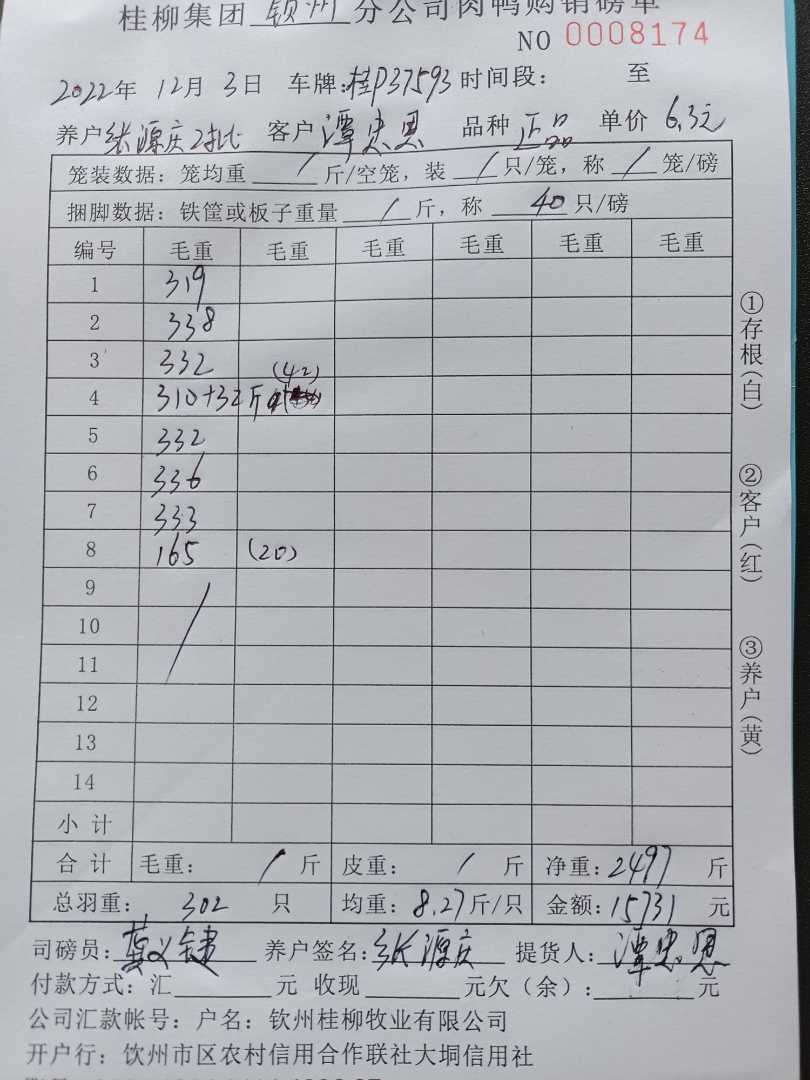 桂柳集团 钦州 分公司肉鸭购销磅单
NO 0008174
2022年 12月 3日 车牌:桂P37593 时间段: 至
养户 张源庆2批 客户 潭忠恩 品种 正品 单价 6.3元
笼装数据: 笼均重 / 斤/空笼, 装 / 只/笼, 称 / 笼/磅
捆脚数据: 铁筐或板子重量 / 斤, 称 40 只/磅
编号 毛重 毛重 毛重 毛重 毛重 毛重
1 319
2 338
3 332
4 310+32斤 (42)
5 332
6 336
7 333
8 165 (20)
9
10
11
12
13
14
小计
合计 毛重: / 斤 皮重: / 斤 净重: 2497 斤
总羽重: 302 只 均重: 8.27斤/只 金额: 15731 元
司磅员: 养户签名: 张源庆 提货人: 潭忠恩
付款方式: 汇 元 收现 元欠(余): 元
公司汇款帐号: 户名: 钦州桂柳牧业有限公司
开户行: 钦州市区农村信用合作联社大垌信用社
①存根(白)
②客户(红)
③养户(黄)